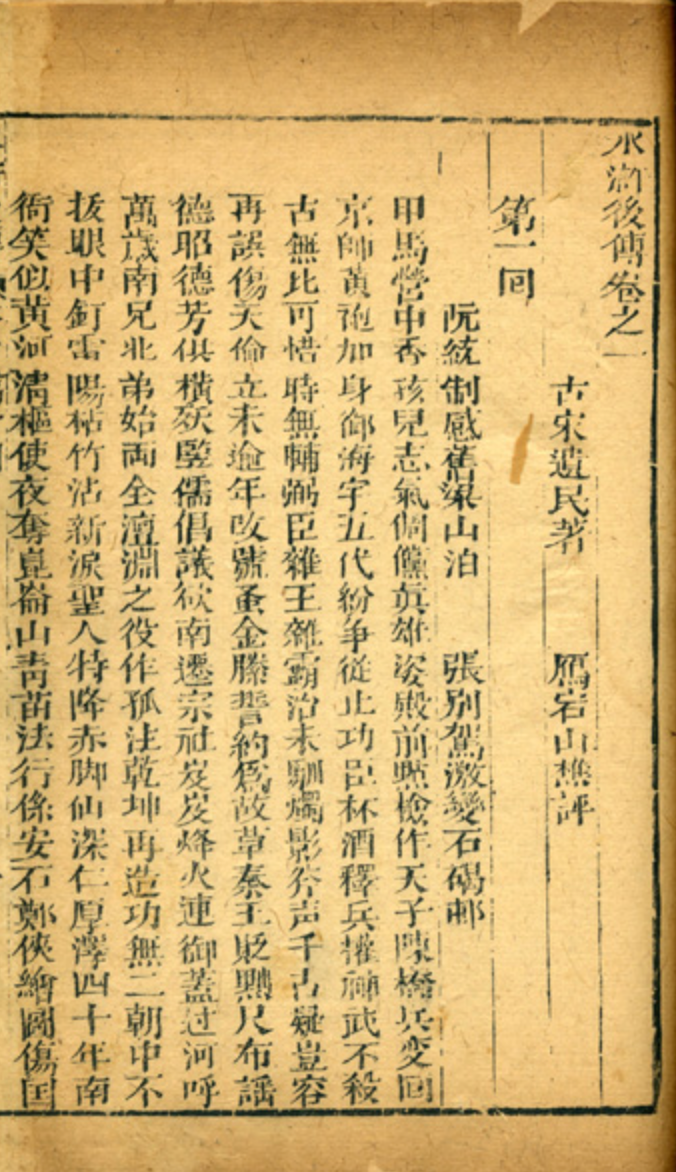 水滸後傳卷之一
古宋遺民著 鴈宕山樵評
第一回
阮統制感舊梁山泊 張別駕激變石碣邨
甲馬營中香孩兒志氣倜儻真雄姿殿前點檢作天子陳橋兵变回
京師黃袍加身御海宇五代紛争從止功臣杯酒釋兵權神武不殺
古無比可惜時無輔弼臣雜王雜霸治未馴燭影斧声千古疑豈容
再誤傷天倫立未逾年改號蚤金縢誓約為故草秦王貶黜尺布謡
德昭德芳俱橫殀豎儒倡議欲南遷宗社岌岌烽火連御蓋过河呼
萬歲南兄北弟始両全澶淵之役作孤注乾坤再造功無二朝中不
拔眼中釘雷陽枯竹沾新淚聖人特降赤脚仙深仁厚澤四十年南
衙笑似黃河清樞使夜奪崑崙山青苗法行係安石鄭俠繪圖傷国